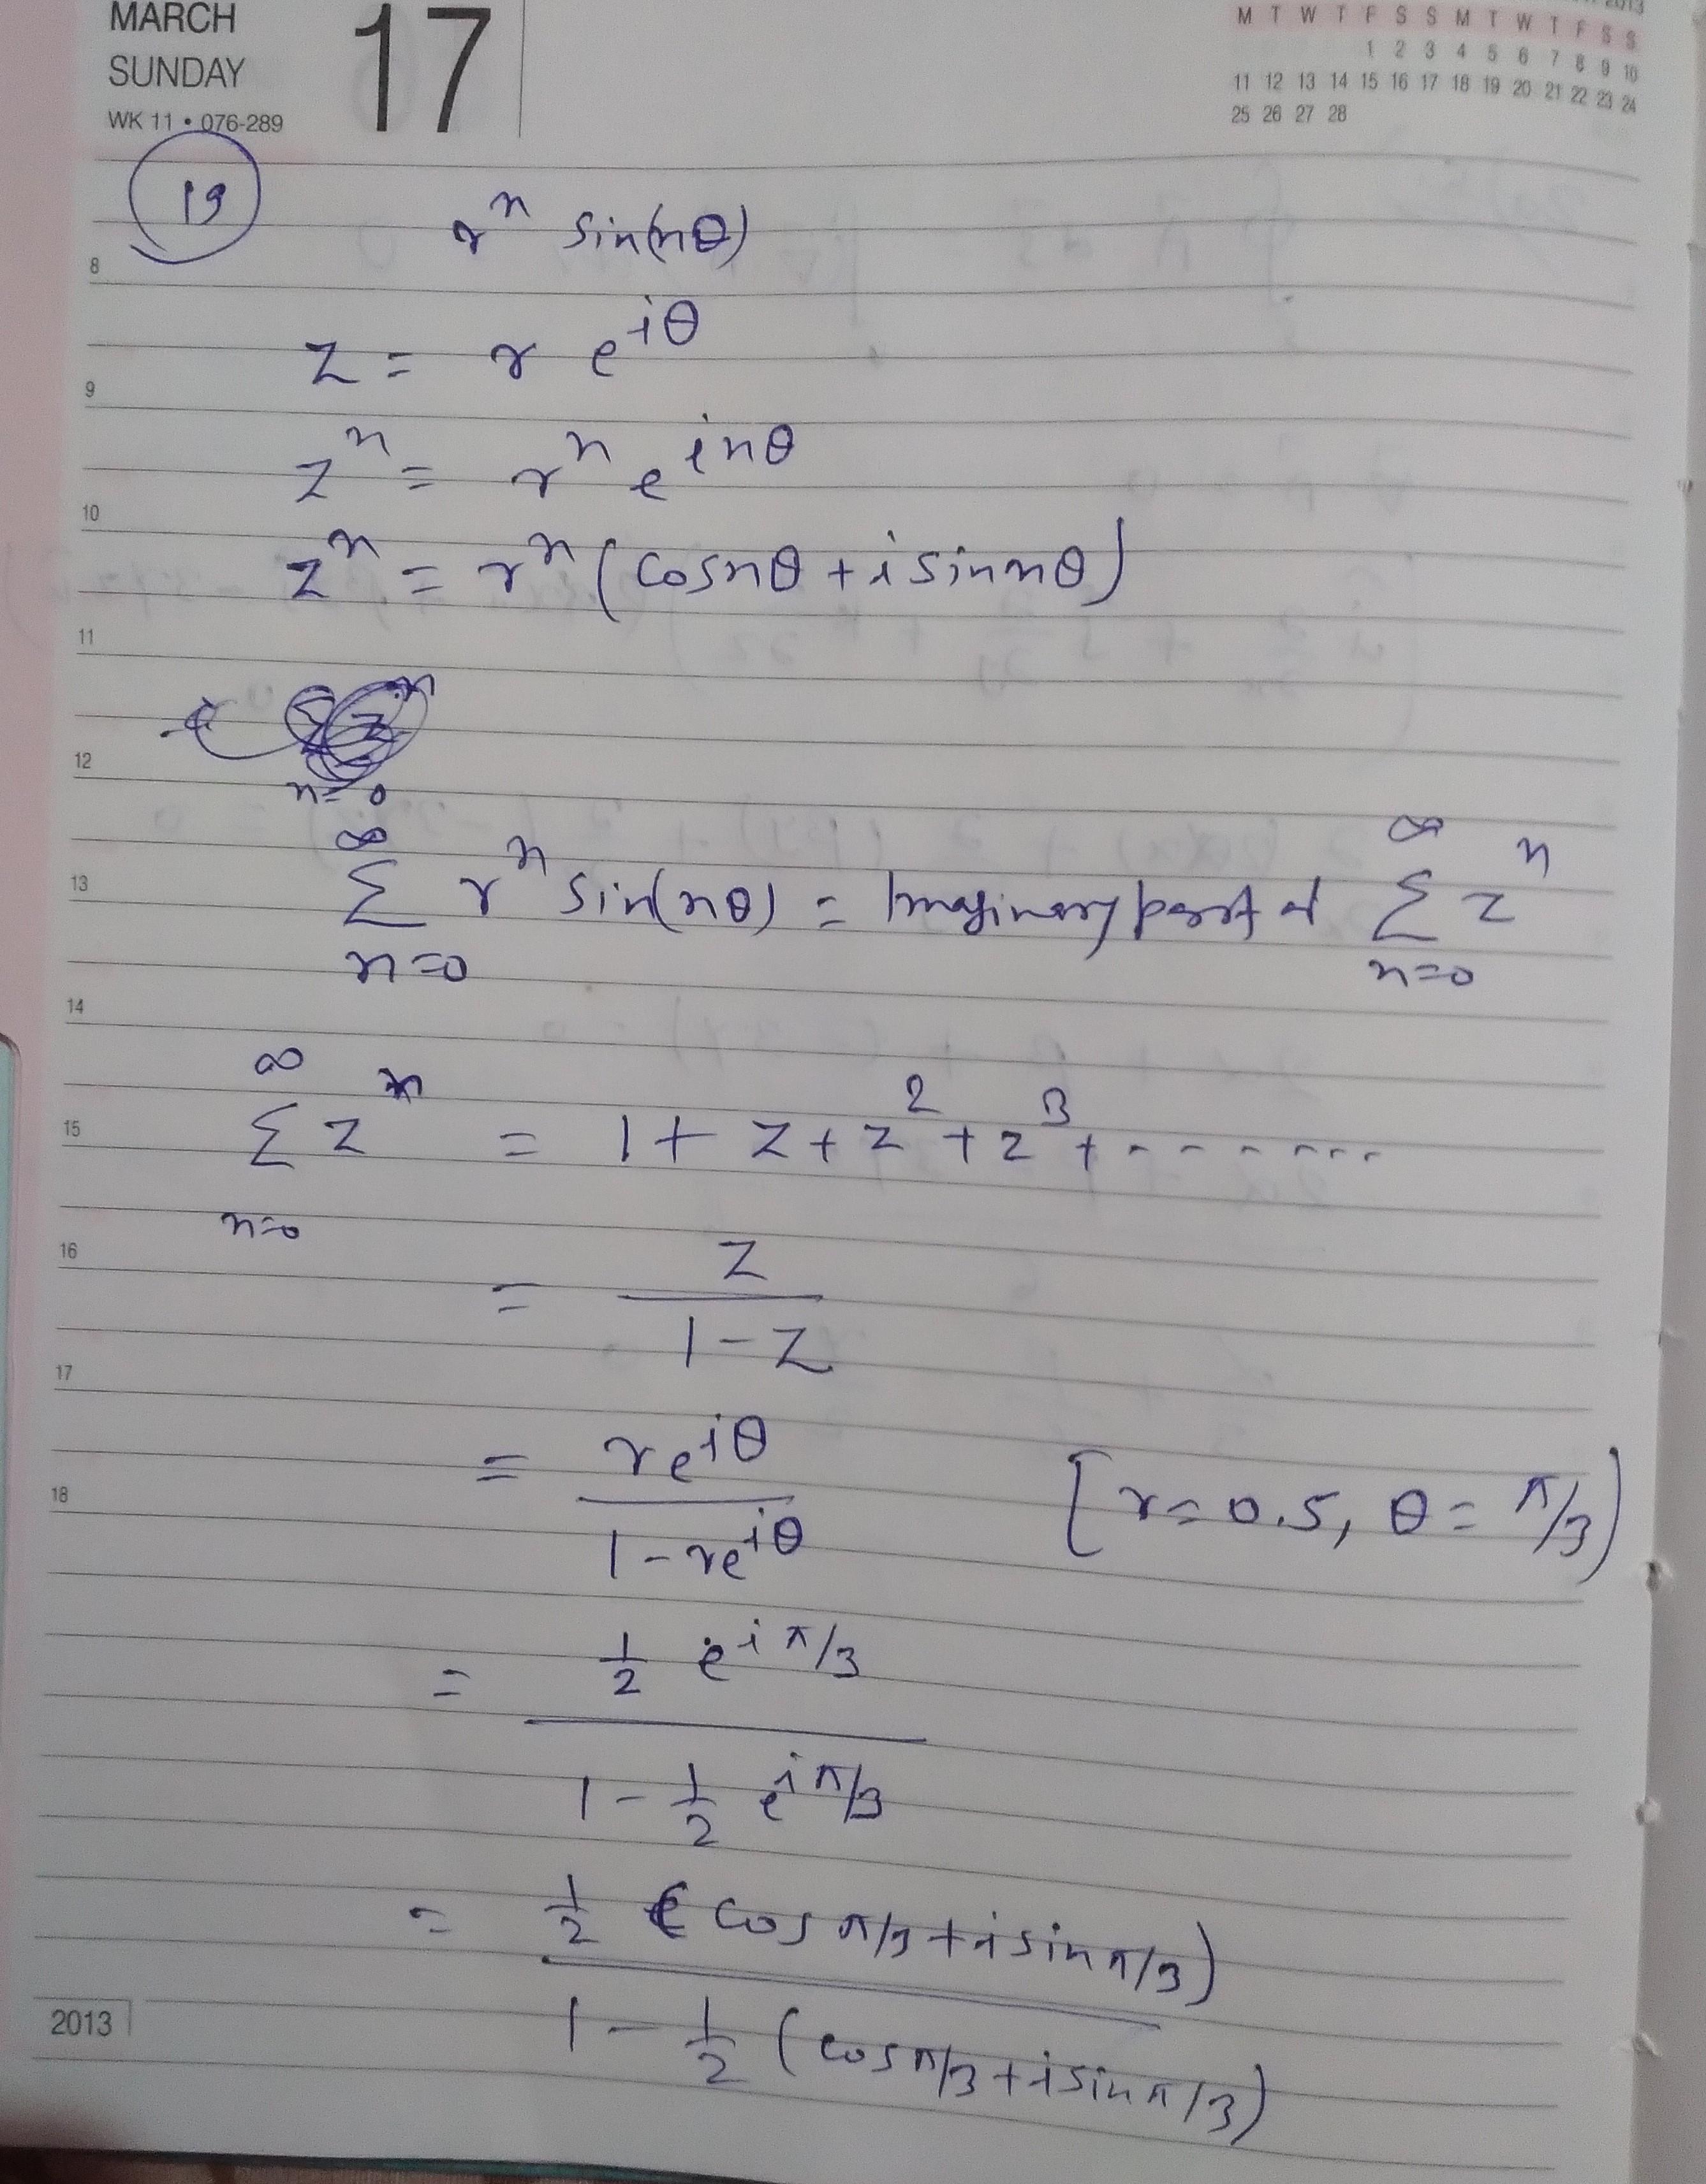 MARCH 17
SUNDAY
WK 11 • 076-289
2013
M T W T F S S M T W T F S S
1 2 3 4 5 6 7 8 9 10
11 12 13 14 15 16 17 18 19 20 21 22 23 24
25 26 27 28
19
r^n sin(nθ)
8
z = r e^{iθ}
9
z^n = r^n e^{inθ}
10
z^n = r^n (cosnθ + i sinnθ)
11
12
n=0
13
∞ Σ n=0 r^n sin(nθ) = Imaginary part of ∞ Σ n=0 z^n
14
15
∞ Σ n=0 z^n = 1 + z + z^2 + z^3 + - - - - - - -
16
= z / 1-z
17
= re^{iθ} / 1-re^{iθ} [r=0.5, θ=π/3)
18
= 1/2 e^{iπ/3} / 1 - 1/2 e^{iπ/3}
= 1/2 (cos π/3 + i sin π/3) / 1 - 1/2 (cos π/3 + i sin π/3)
2013